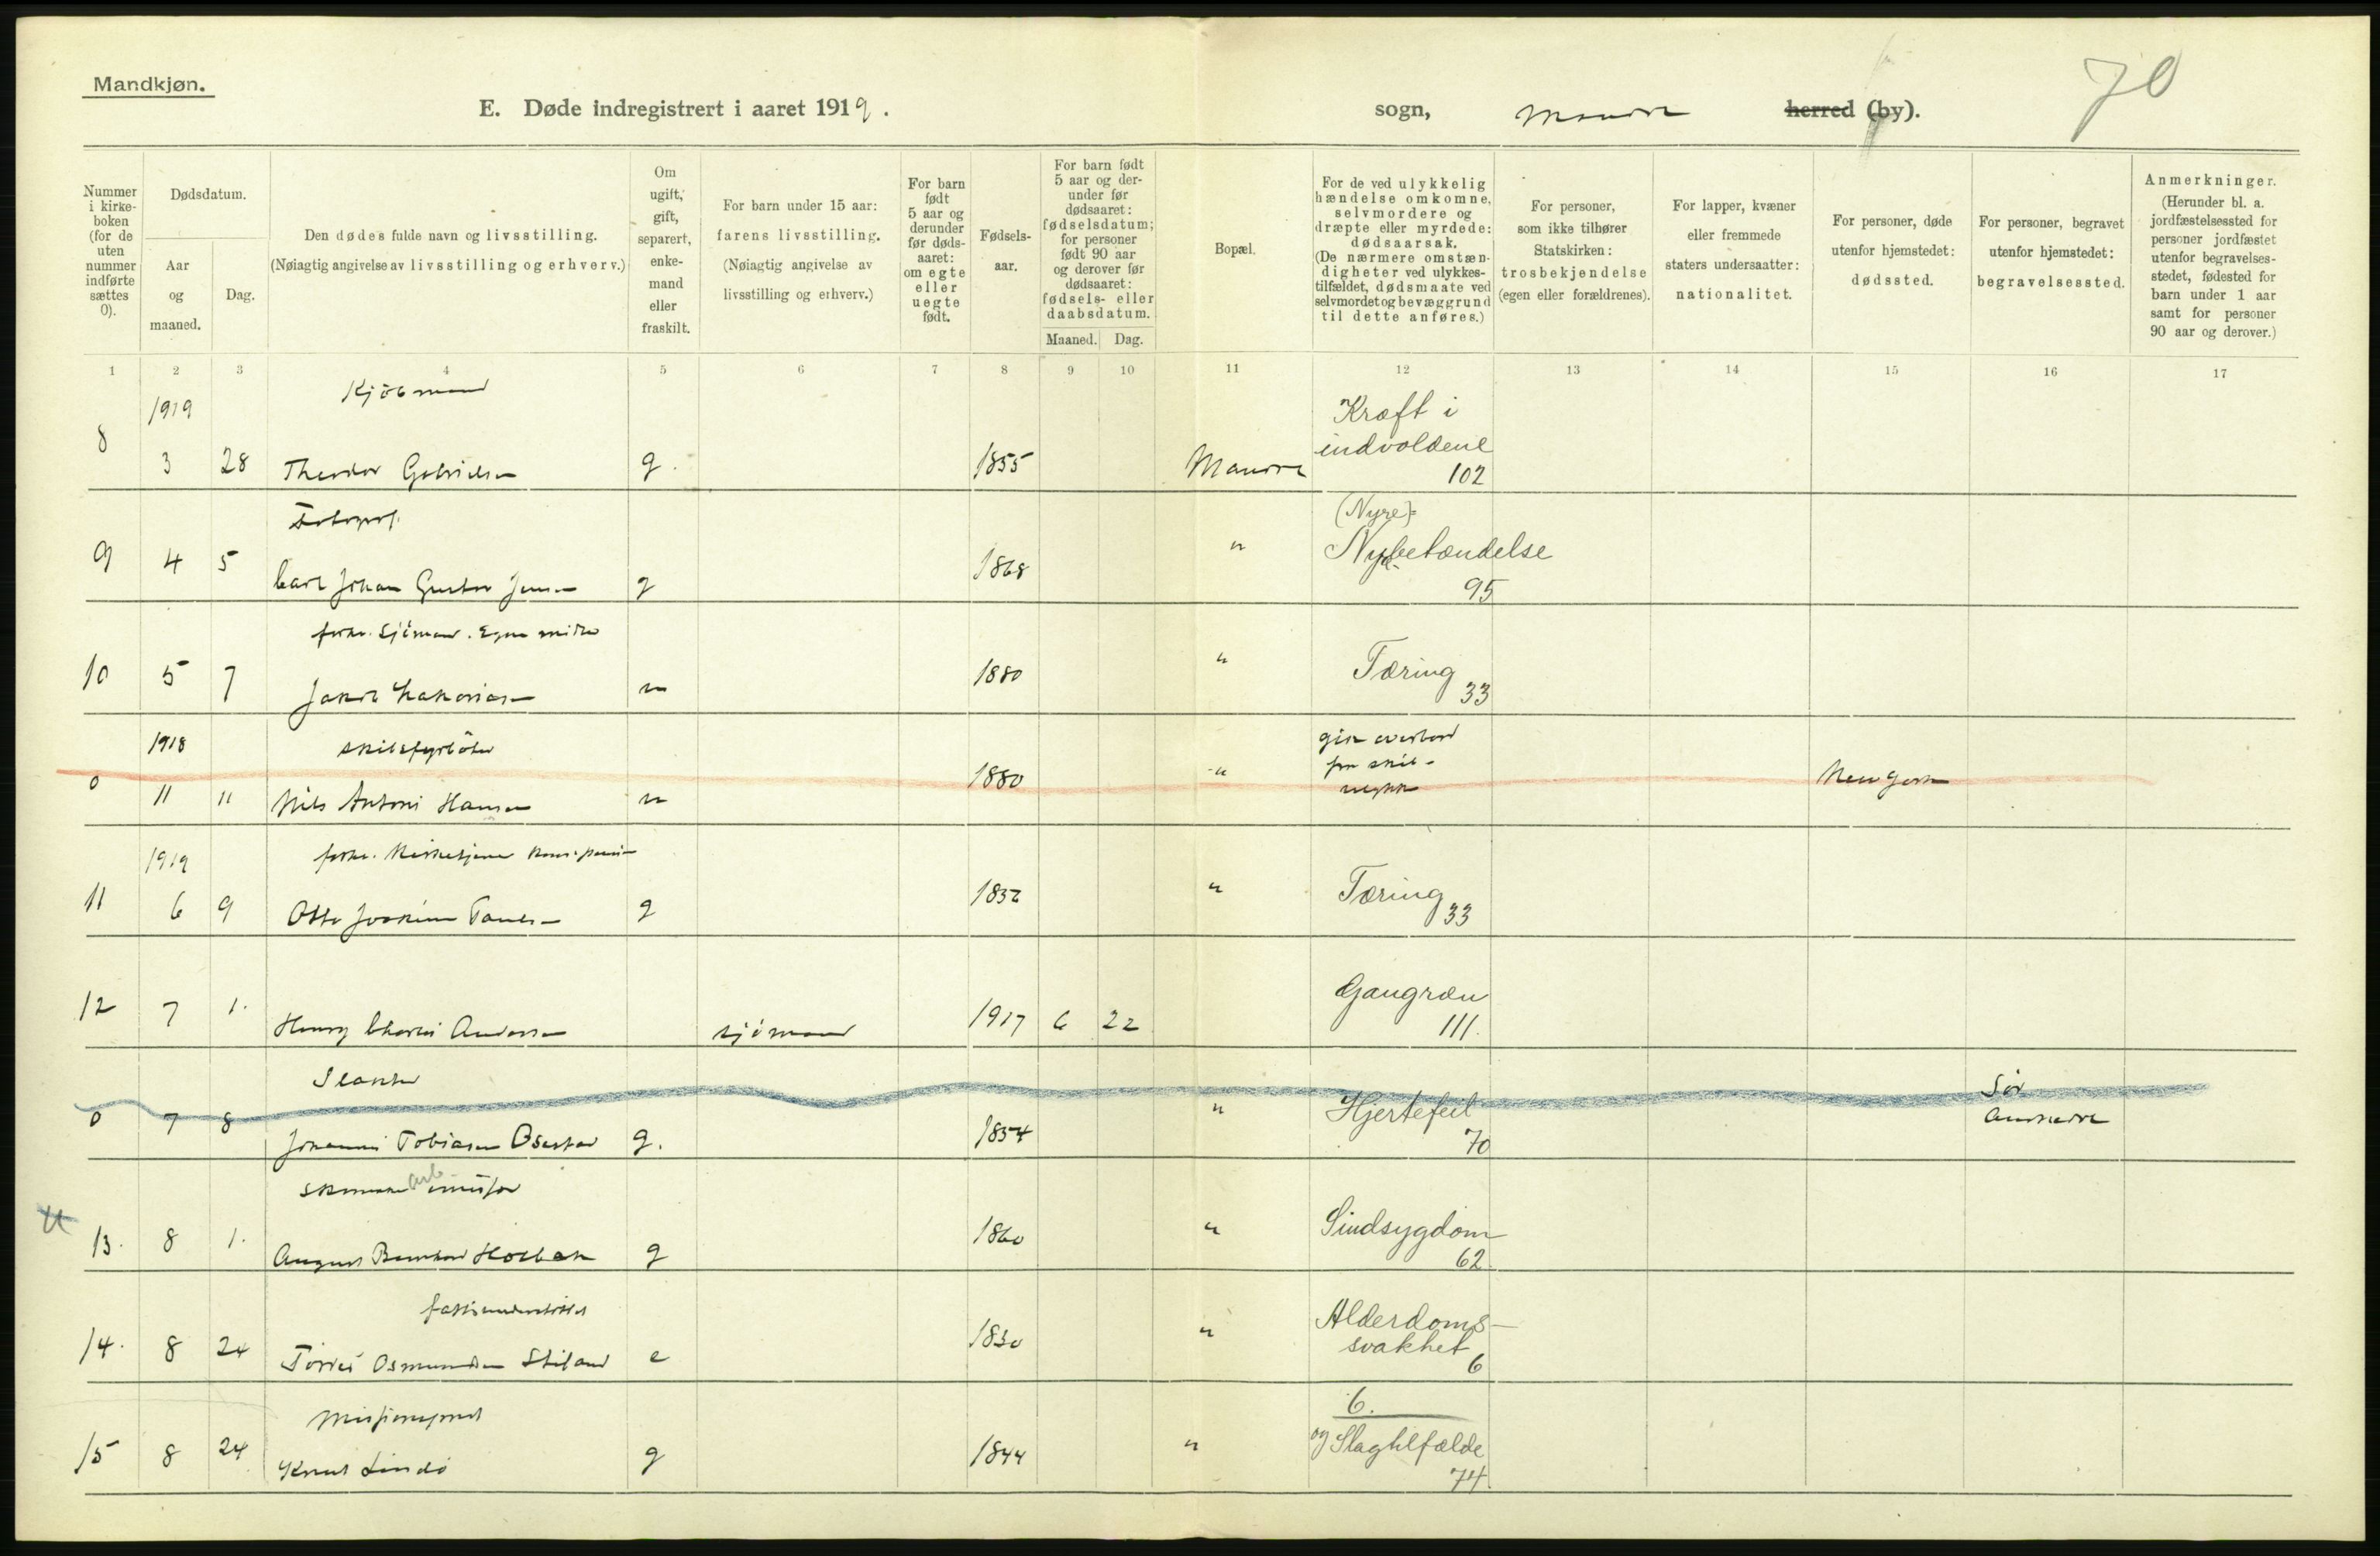 Mandkjøn.
70
E. Døde indregistrert i aaret 1919.
sogn,
herred (by).
Nummer i kirke-boken (for de uten nummer indførte sættes 0).
Dødsdatum.
Aar og maaned.
Dag.
Den dødes fulde navn og livsstilling.
(Nøiagtig angivelse av livsstilling og erhverv.)
Om ugift, gift, separert, enke-mand eller fraskilt.
For barn under 15 aar:
farens livsstilling.
(Nøiagtig angivelse av livsstilling og erhverv.)
For barn født 5 aar og derunder før døds-aaret: om egte eller uegte født.
Fødsels-aar.
For barn født 5 aar og der-under før dødsaaret: fødselsdatum; for personer født 90 aar og derover før dødsaaret: fødsels- eller daabsdatum.
Maaned.
Dag.
Bopæl.
For de ved ulykkelig hændelse omkomne, selvmordere og dræpte eller myrdede: dødsaarsak.
(De nærmere omstæn-digheter ved ulykkes-tilfældet, dødsmaate ved selvmordet og bevæggrund til dette anføres.)
For personer, som ikke tilhører Statskirken: trosbekjendelse (egen eller forældrenes).
For lapper, kvæner eller fremmede staters undersaatter: nationalitet.
For personer, døde utenfor hjemstedet: dødssted.
For personer, begravet utenfor hjemstedet: begravelsessted.
Anmerkninger.
(Herunder bl. a. jordfæstelsessted for personer jordfæstet utenfor begravelses-stedet, fødested for barn under 1 aar samt for personer 90 aar og derover.)
1 2 3 4 5 6 7 8 9 10 11 12 13 14 15 16 17
1919 Kjöbmand
Kræft i
indvoldene
8 3 28 Theodor Gabrielsen g. 1855 102
(Nyre)=
9 4 5 Carl Johan Gustav Jensen g 1868 " Nybetændelse
95
10 5 7 Jakob Zakariasen u 1880 " Tæring
33
1918 skibsfyrböter
gik overbord
fra skib-
0 11 11 Nils Antoni Hansen u 1880 " New York
1919
11 6 9 Otto Joakim g 1832 " Tæring
33
12 7 1. Henry Charles Andersen sjömand 1917 6 22 Gangræn
111.
Slakter
0 7 8 Johannes Tobiasen g. 1854 " Hjertefeil
70
Sör
Audnedal
arb
13. 8 1. August Bernhard Holbek g 1860 " Sindsygdom
62
fattigunderstöttet
14. 8 24 Osmundsen e 1830 " Alderdoms-
svakhet
6
Misjonsprest
6.
15 8 24 Knud Lindö g 1844 " og Slagtilfælde
74.